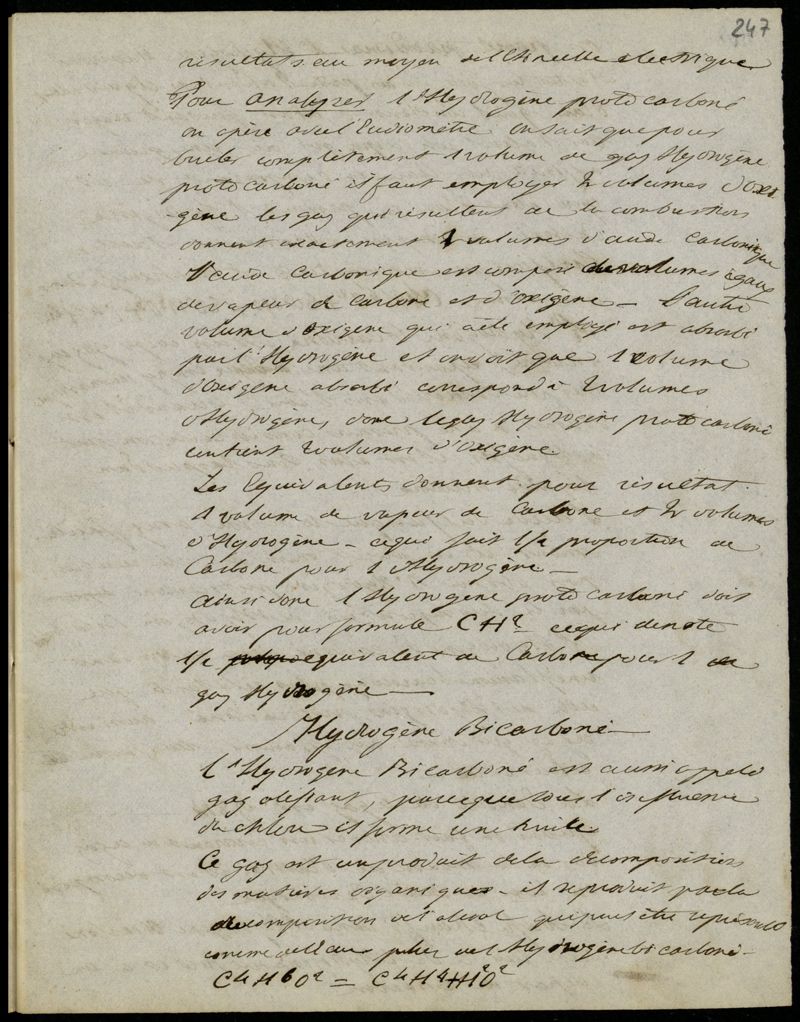 247
résultats au moyen de l'étincelle électrique
Pour analyser l'Hydrogène proto carboné
on opère avec l'Eudiomètre on sait que pour
bruler complètement 1 volume de gaz Hydrogène
proto carboné il faut employer 2 volumes d'oxi
gène les gaz qui résultent de la combustion
donnent exactement 1 volumes d'acide carbonique
l'acide carbonique est composé de volumes égaux
de vapeur de carbone et d'oxigène — L'autre
volume d'oxigène qui a été employé est absorbé
par l'Hydrogène et on voit que 1 volume
d'oxigène absorbé correspond à 2 volumes
d'Hydrogène, donc le gaz Hydrogène proto carboné
contient 2 volumes d'oxigène
Les équivalents donnent pour résultat
1 volume de vapeur de Carbone et 2 volumes
d'Hydrogène — ce qui fait 1/2 proportion de
Carbone pour 1 d'Hydrogène —
Ainsi donc l'Hydrogène proto carboné doit
avoir pour formule CH2 ce qui denote
1/2 equivalent de Carbone pour 1 de
gaz Hydrogène —
Hydrogène Bicarboné —
l'Hydrogène Bicarboné est aussi appelé
gaz oléfiant, parceque sous l'influence
du chlore il forme une huile
Ce gaz est un produit de la décomposition
des matières organiques — il se produit par la
décomposition de l'alcool qui peut être représenté
comme de l'eau plus de l'Hydrogène bicarboné —
C4H6O2 = C4H4+H2O2